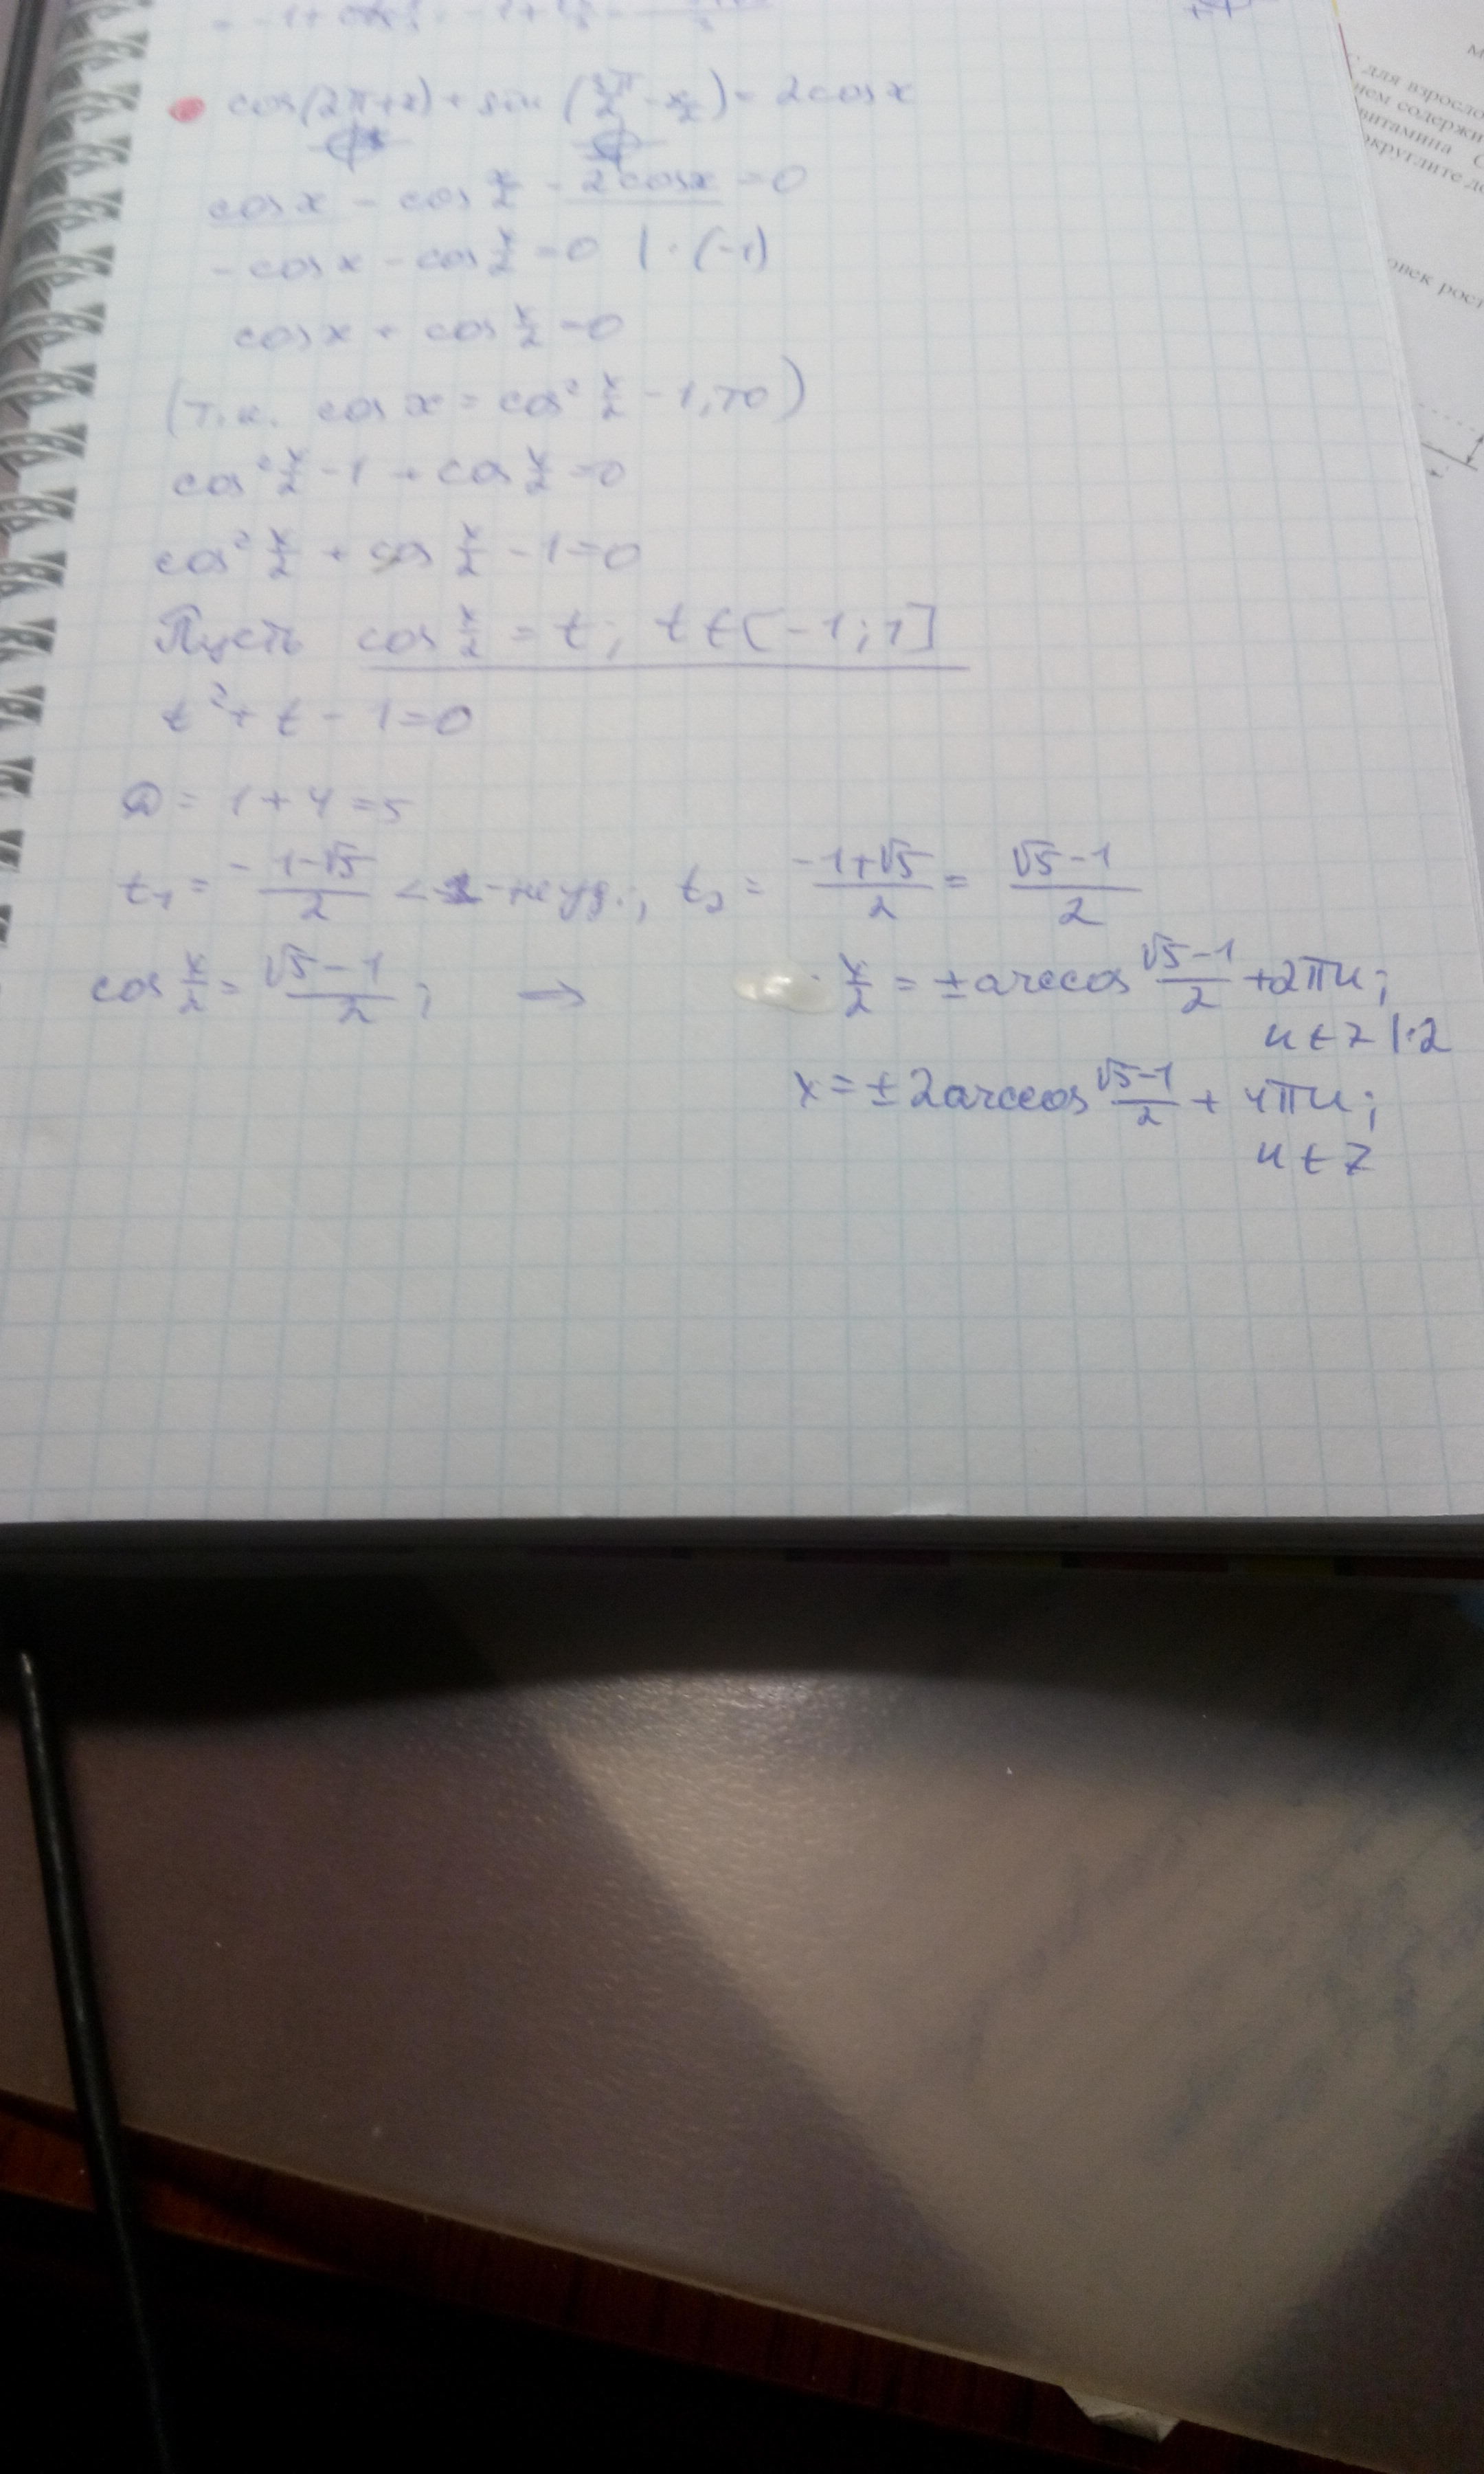 cos(2π+x) + sin(3π/2 - x/2) = 2cosx
cosx - cos x/2 - 2cosx = 0
-cosx - cos x/2 = 0 | · (-1)
cosx + cos x/2 = 0
(т.к. cos x = cos² x/2 - 1, то)
cos² x/2 - 1 + cos x/2 = 0
cos² x/2 + cos x/2 - 1 = 0
Пусть cos x/2 = t; t ∈ [-1; 1]
t² + t - 1 = 0
D = 1 + 4 = 5
t₁ = (-1-√5)/2 < -1 - не уд.; t₂ = (-1+√5)/2 = (√5-1)/2
cos x/2 = (√5-1)/2; → x/2 = ± arccos (√5-1)/2 + 2πn;
n ∈ Z | · 2
x = ± 2arccos (√5-1)/2 + 4πn;
n ∈ Z
для взросло
нем содержи
витамина С
округлите до
овек рост